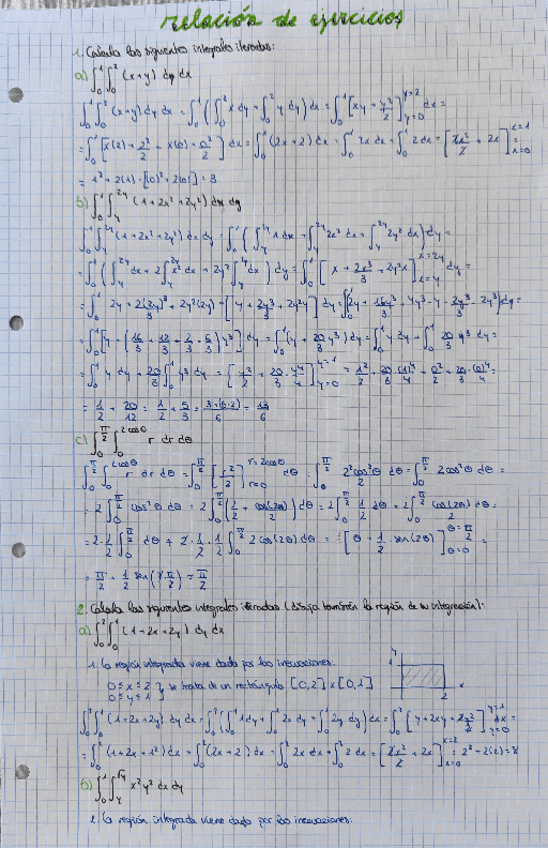 relación de ejercicios
1. Calcula las siguientes integrales iteradas:
a) ∫₀¹∫₀² (x+y) dy dx
∫₀¹∫₀² (x+y) dy dx = ∫₀¹(∫₀² x dy + ∫₀² y dy) dx = ∫₀¹ [xy + y²/2]_{y=0}^{y=2} dx =
= ∫₀¹ [x(2) + 2²/2 - x(0) + 0²/2] dx = ∫₀¹ (2x+2) dx = ∫₀¹ 2x dx + ∫₀¹ 2 dx = [2x²/2 + 2x]_{x=0}^{x=1} =
= 1² + 2(1) - [(0)² + 2(0)] = 3
b) ∫₀¹∫_y^{2y} (1+2x²+2y²) dx dy
∫₀¹∫_y^{2y} (1+2x²+2y²) dx dy = ∫₀¹ (∫_y^{2y} 1 dx + ∫_y^{2y} 2x² dx + ∫_y^{2y} 2y² dx) dy =
= ∫₀¹ (∫_y^{2y} dx + 2∫_y^{2y} x² dx + 2y² ∫_y^{2y} dx) dy = ∫₀¹ [x + 2x³/3 + 2y²x]_{x=y}^{x=2y} dy =
= ∫₀¹ 2y + 2(2y)³/3 + 2y²(2y) - [y + 2y³/3 + 2y²y] dy = ∫₀¹ (2y + 16y³/3 + 4y³ - y - 2y³/3 - 2y³) dy =
= ∫₀¹ (y + 20/3 y³) dy = ∫₀¹ y dy + ∫₀¹ 20/3 y³ dy =
= ∫₀¹ y dy + 20/3 ∫₀¹ y³ dy = [y²/2 + 20/3 · y⁴/4]_{y=0}^{y=1} = 1²/2 + 20/3 · (1)⁴/4 - 0²/2 + 20/3 · (0)⁴/4 =
= 1/2 + 20/12 = 1/2 + 5/3 = = 13/6
c) ∫₀^{π/2}∫₀^{2cosθ} r dr dθ
∫₀^{π/2}∫₀^{2cosθ} r dr dθ = ∫₀^{π/2} [r²/2]_{r=0}^{r=2cosθ} dθ = ∫₀^{π/2} 2²cos²θ/2 dθ = ∫₀^{π/2} 2cos²θ dθ =
= 2∫₀^{π/2} cos²θ dθ = 2∫₀^{π/2} (1/2 + cos(2θ)/2) dθ = 2∫₀^{π/2} 1/2 dθ + 2∫₀^{π/2} cos(2θ)/2 dθ =
= 2·1/2 ∫₀^{π/2} dθ + 2·1/2·1/2 ∫₀^{π/2} 2cos(2θ) dθ = [θ + 1/2 · sen(2θ)]_{θ=0}^{θ=π/2} =
= π/2 + 1/2 sen(2·π/2) = π/2
2. Calcula las siguientes integrales iteradas (dibuja también la región de su integración):
a) ∫₀²∫₀¹ (1+2x+2y) dy dx
1. La región integrada viene dada por las inecuaciones:
0≤x≤2
0≤y≤1 } se trata de un rectángulo [0,2]x[0,1]
y
1
2
x
∫₀²∫₀¹ (1+2x+2y) dy dx = ∫₀² (∫₀¹ 1 dy + ∫₀¹ 2x dy + ∫₀¹ 2y dy) dx = ∫₀² [y + 2xy + 2y²/2]_{y=0}^{y=1} dx =
= ∫₀² (1+2x+1²) dx = ∫₀² (2x+2) dx = ∫₀² 2x dx + ∫₀² 2 dx = [2x²/2 + 2x]_{x=0}^{x=2} = 2² + 2(2) = 8
b) ∫₀¹∫_y^{√y} x²y² dx dy
1. La región integrada viene dada por las inecuaciones: